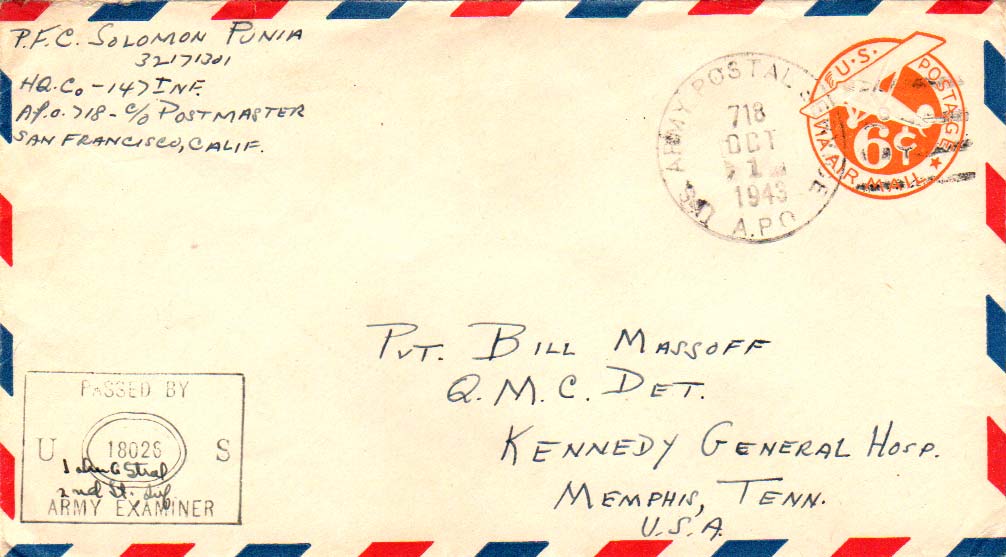 P.F.C. SOLOMON PUNIA
32171301
HQ. Co - 147 INF.
A.P.O. 718 - C/O POSTMASTER
SAN FRANCISCO, CALIF.
U.S. ARMY POSTAL SERVICE
718
OCT
1
1943
A.P.O.
U.S. POSTAGE
6¢
VIA AIR MAIL
PVT. BILL MASSOFF
Q.M.C. DET.
KENNEDY GENERAL HOSP.
MEMPHIS, TENN.
U.S.A.
PASSED BY
U 18026 S
2nd Lt. Inf
ARMY EXAMINER